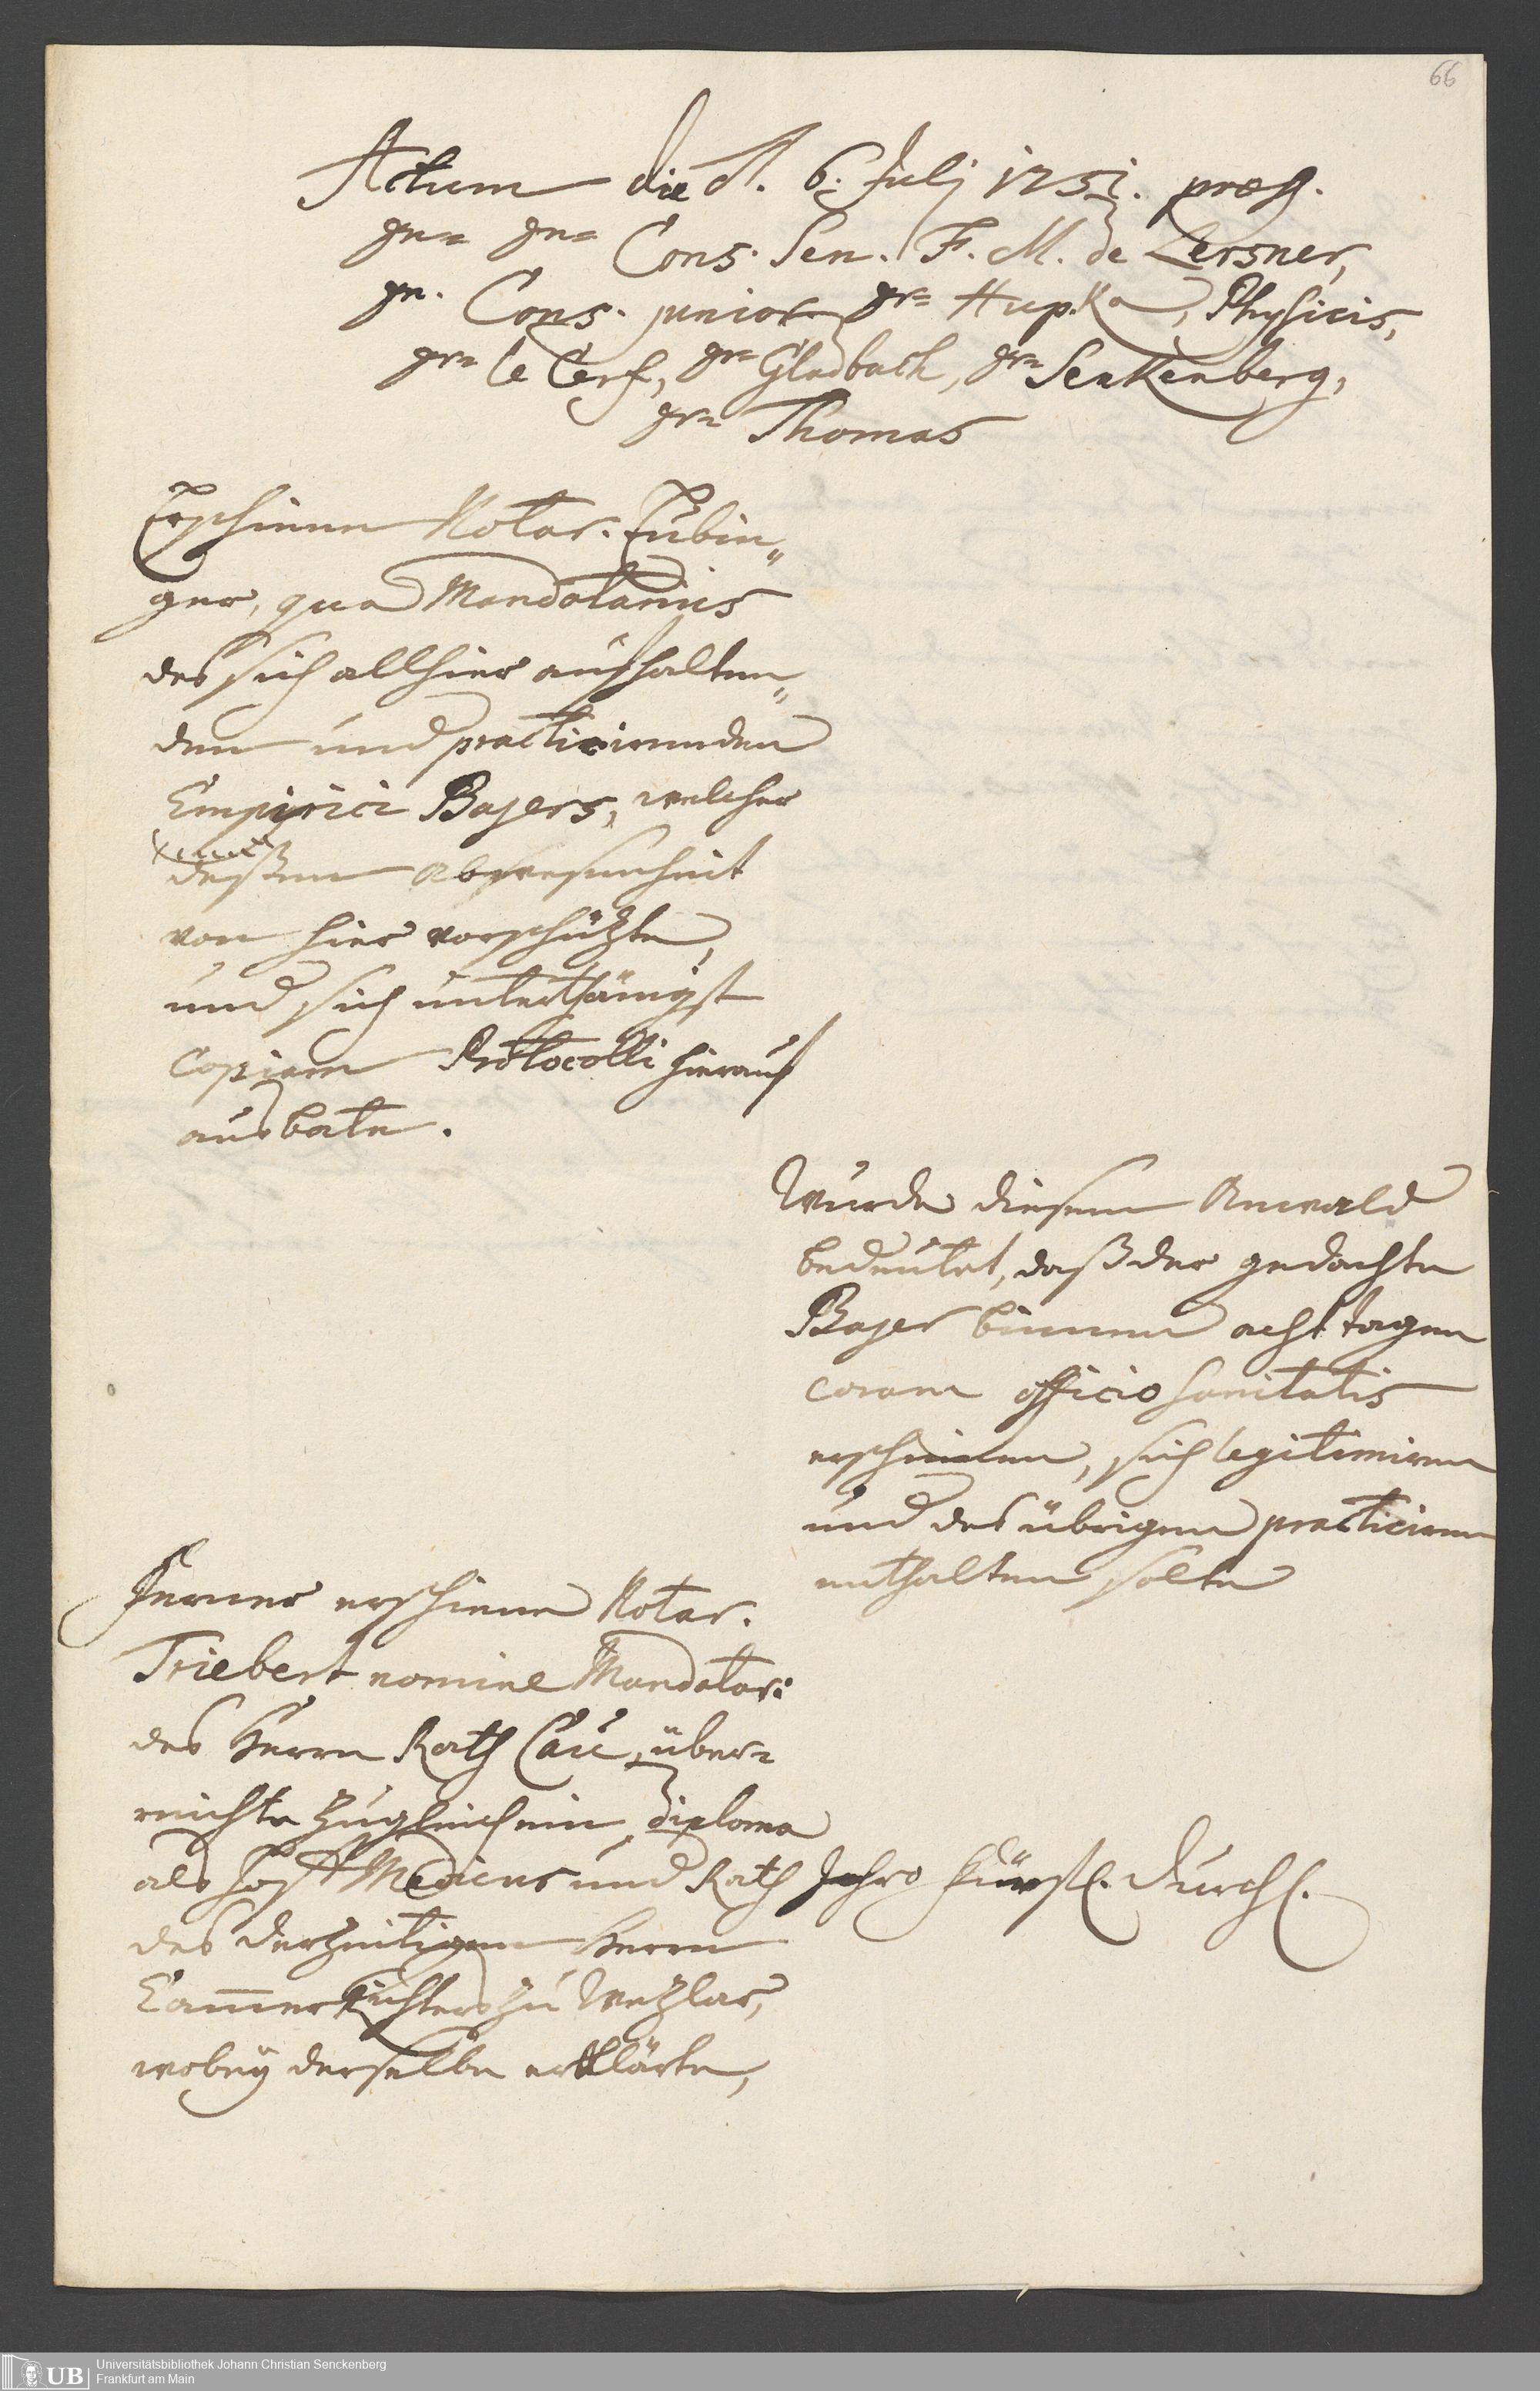 66
Actum die ♂. 6. Julj 1751. præs.
Cons. Sen. F. M. de Lersner,
Cons. junior Hr= Hupka, Physicis,
Hr= le Cerf, Hr= Gladbach, Hr= Senkenberg,
Hr= Thomas
Erschiene Notar. Tübin„
ger, qua Mandatarius
des sich allhier aufhalten„
den und practicirenden
Empirici Bajers, welcher
deßen Abwesenheit
von hier vorschützte,
und sich unterthänigst
Copiam Protocolli hierauf
ausbate.
Wurde diesem Anwald
bedeutet, daß der gedachte
Bajer binnen acht tagen
coram officio Sanitatis
erscheinen, sich legitimiren
und des übrigen practiciren
enthalten solte
Ferner erschiene Notar.
Triebert nomine Mandatar:
des Herrn Rath Cau, über=
reichte zugleich ein diploma
als Hoff Medicus und Rath Jhro Fürstl. Durchl.
des derzeitigen Herrn
Cam̅erRichters zu Wetzlar,
wobey derselbe erklärte,
Universitätsbibliothek Johann Christian Senckenberg
UB Frankfurt am Main